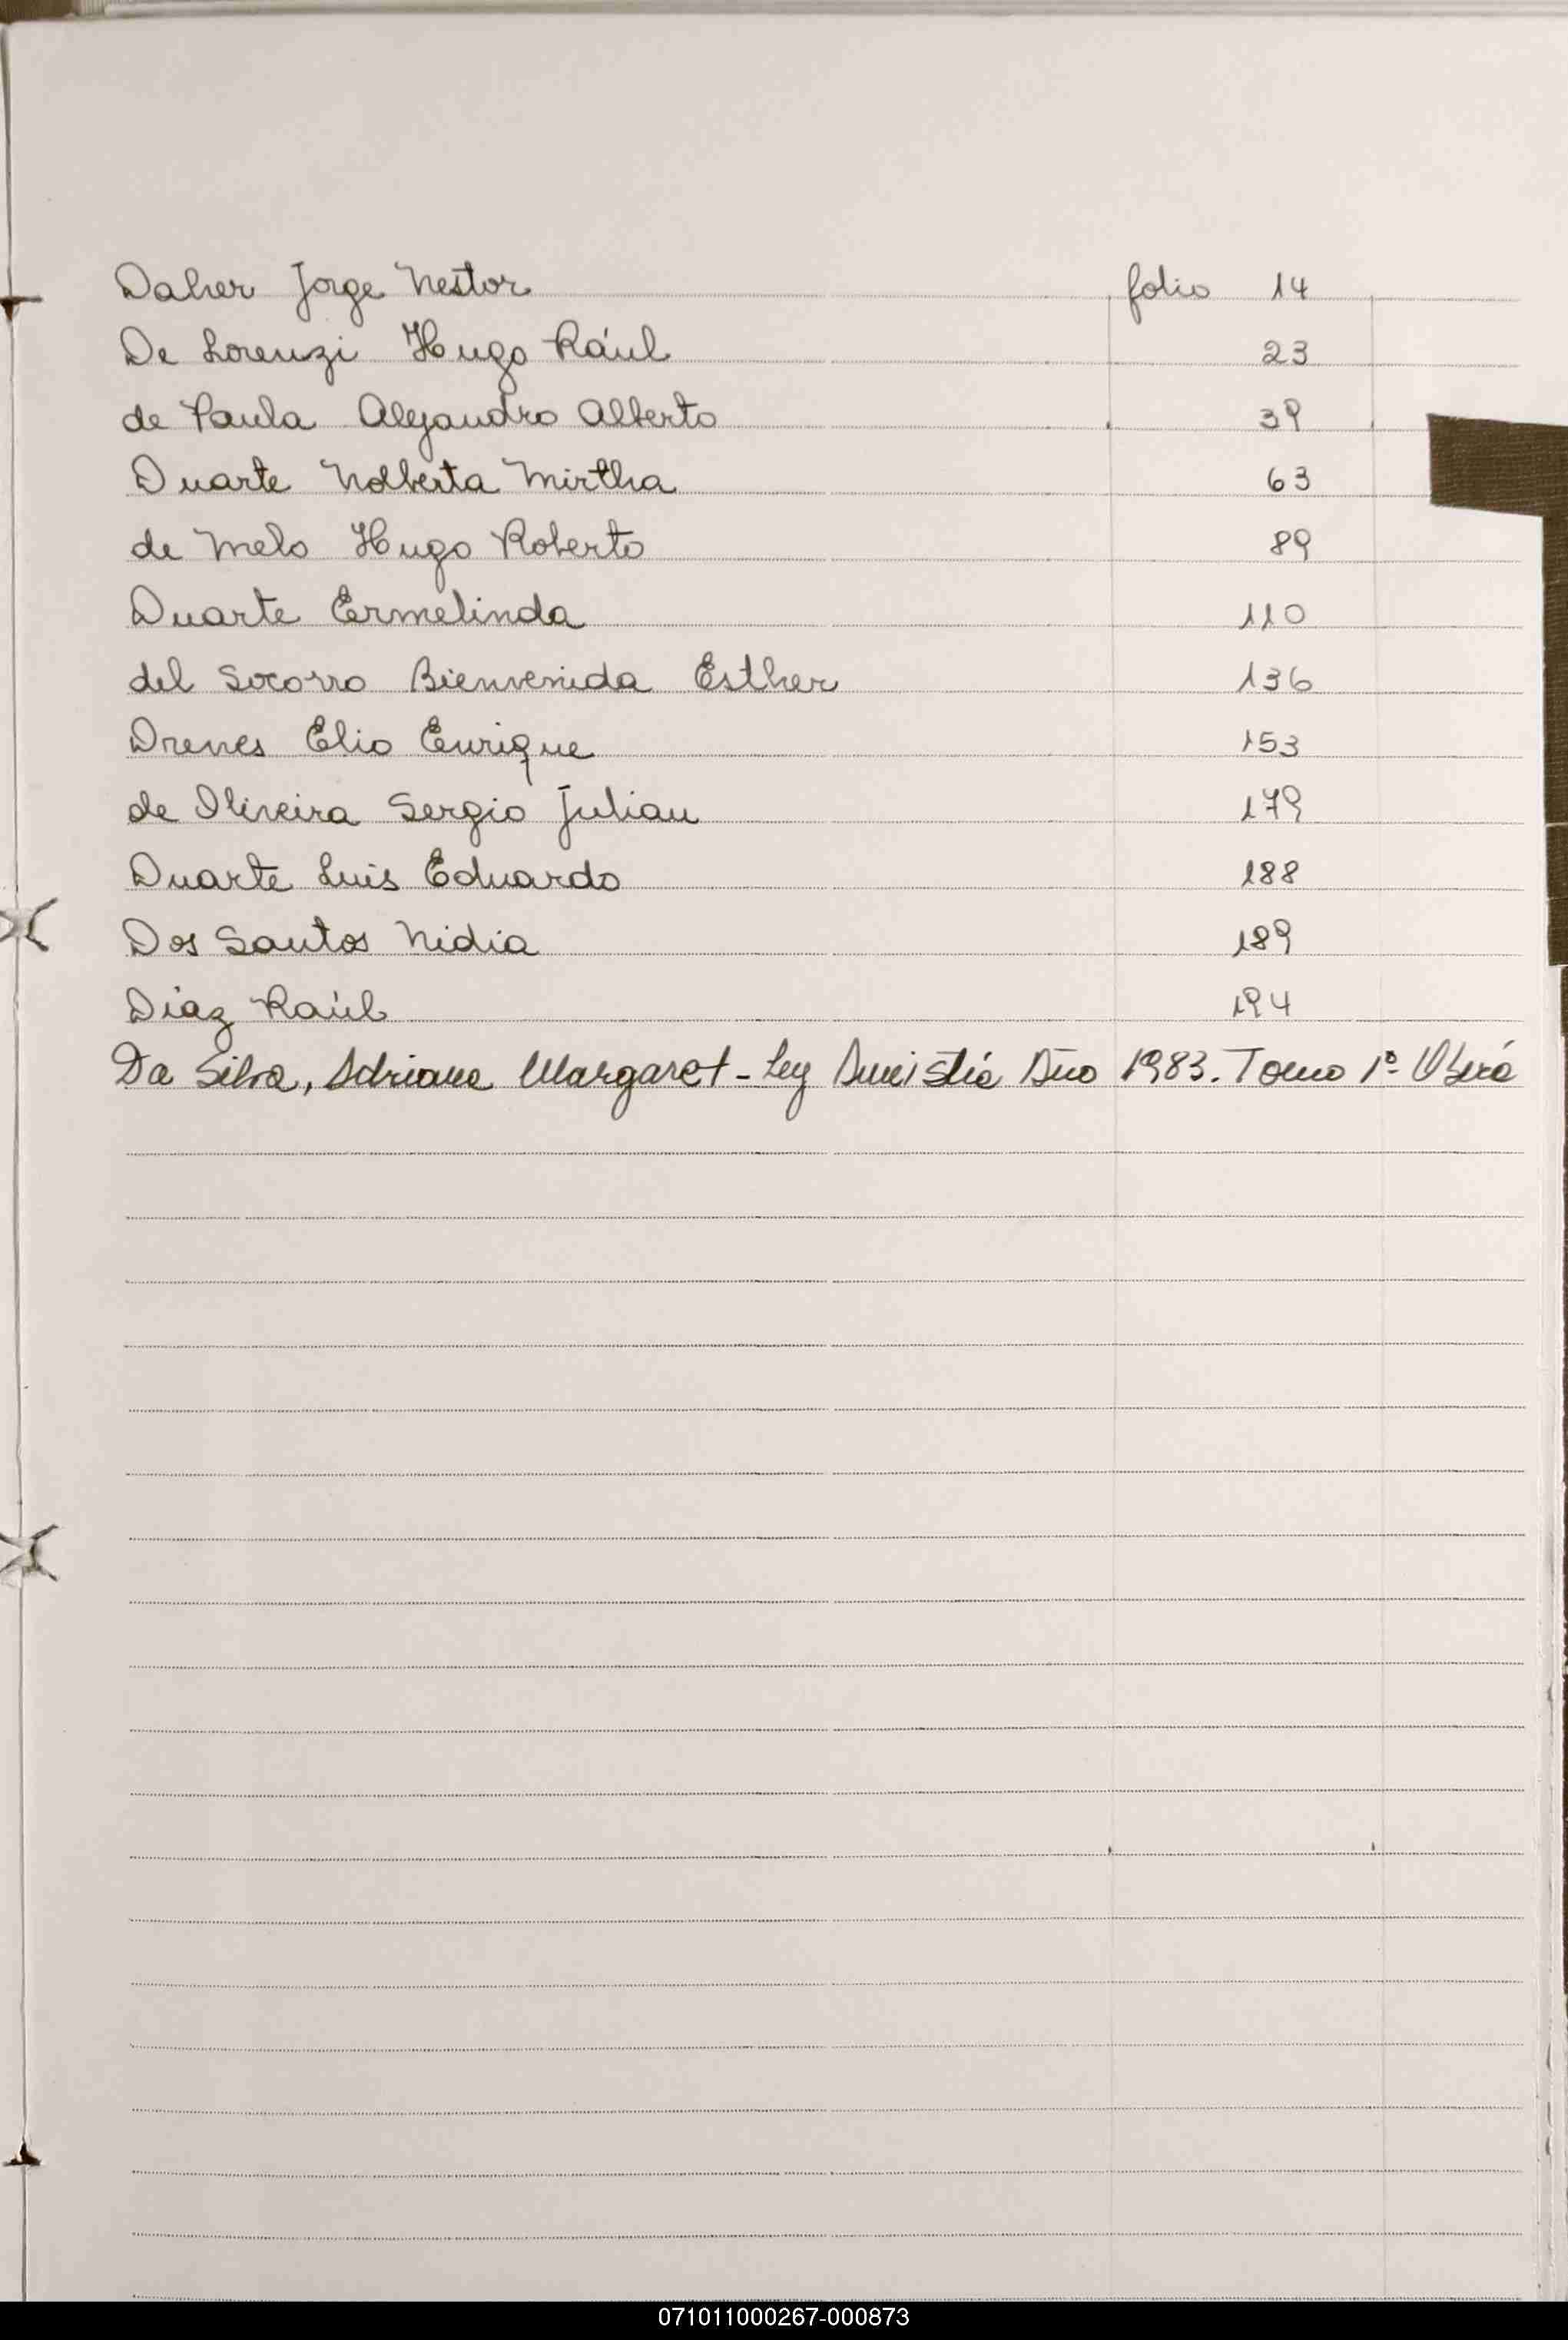 Daher Jorge Nestor folio 14
De Lorenzi Hugo Raúl 23
de Paula Alejandro Alberto 39
Duarte Nolberta Mirtha 63
de Melo Hugo Roberto 89
Duarte Ermelinda 110
del Socorro Bienvenida Esther 136
Dreves Elio Enrique 153
de Oliveira Sergio Julian 179
Duarte Luis Eduardo 188
Dos Santos Nidia 189
Diaz Raúl 194
Da Silva, Adriana Margaret - Ley Amnistia Año 1983. Tomo 1º Oberá
071011000267-000873